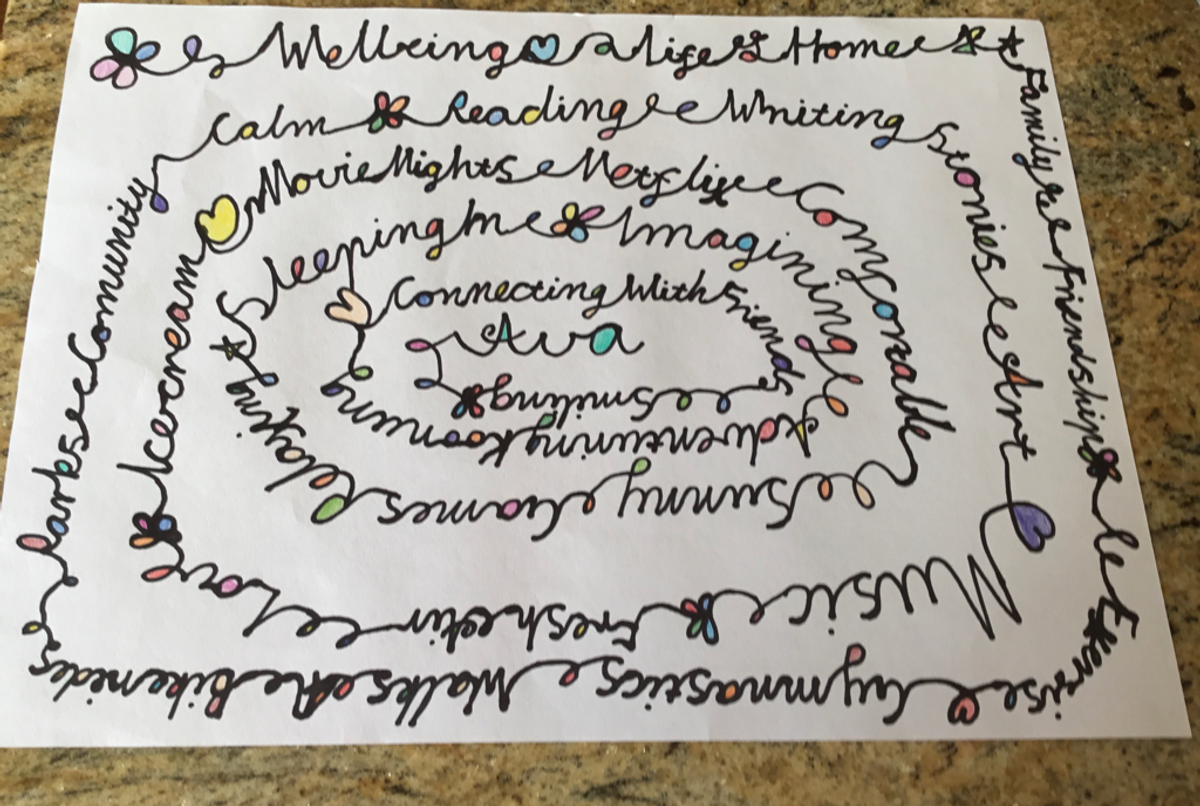 Wellbeing a life Home
Family Friendship
Exercise
Gymnastics Walks Bikerides
Parks Comunity
Calm Reading Writing
Stories Art
Music Fresh air Love
Icecream
Movie Nights Netflix Comforable
Sunny Games Playing
Sleeping In Imagining
Adventuring
Connecting With Friends
Smiling
Ava